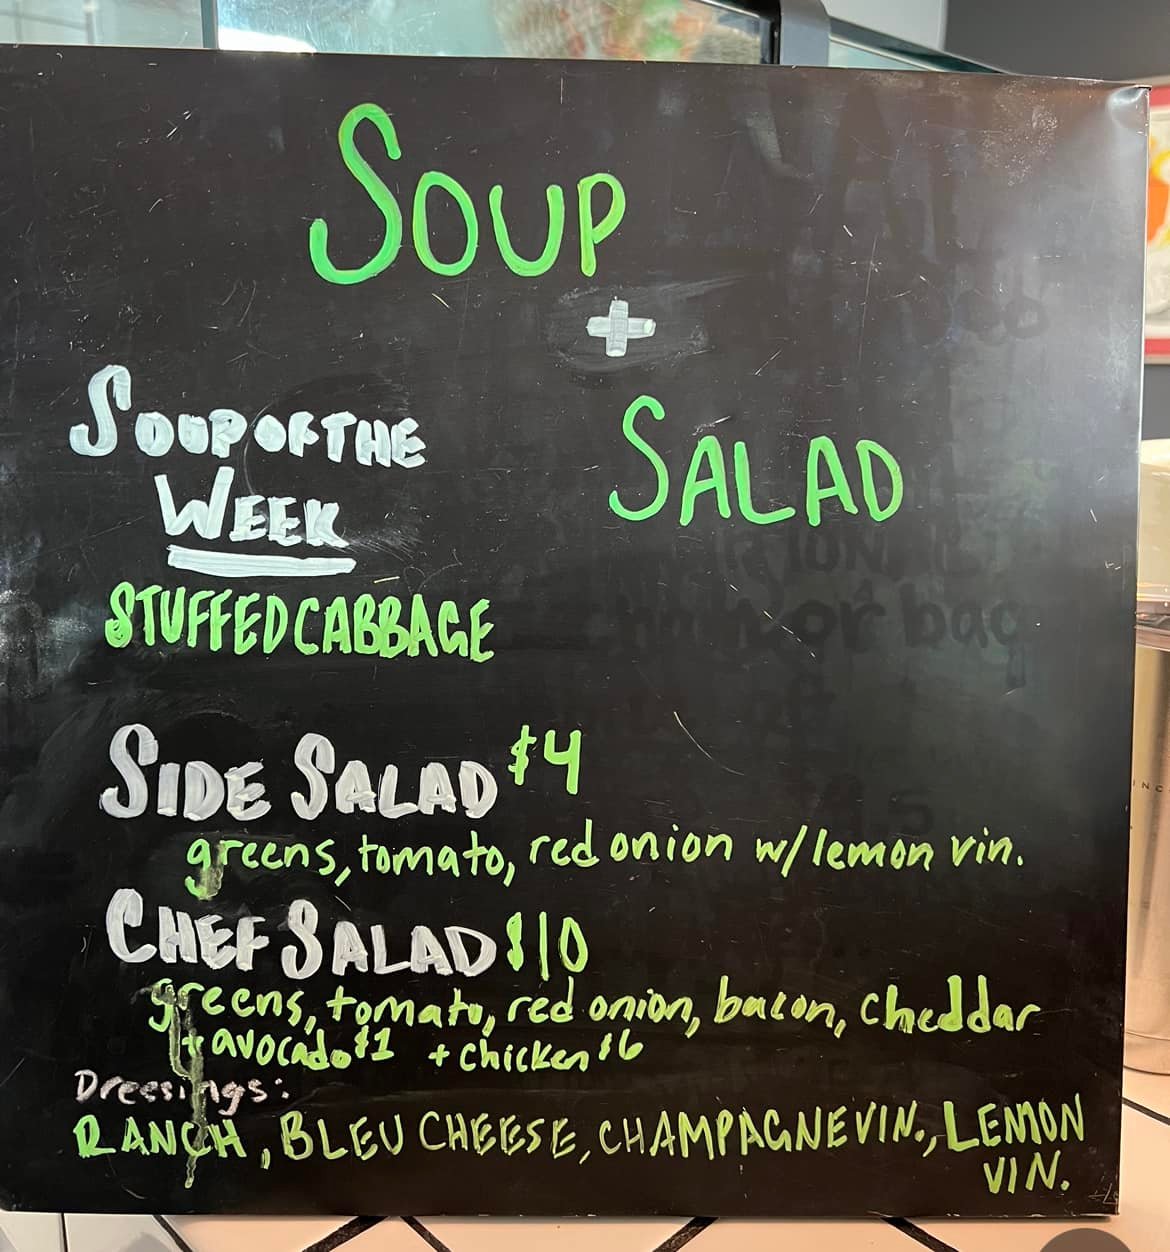 SOUP
+
SALAD
SOUP OF THE
WEEK
STUFFED CABBAGE
SIDE SALAD $4
greens, tomato, red onion w/ lemon vin.
CHEF SALAD $10
greens, tomato, red onion, bacon, cheddar
+ avocado $1 + chicken $6
Dressings:
RANCH, BLEU CHEESE, CHAMPAGNE VIN., LEMON
VIN.